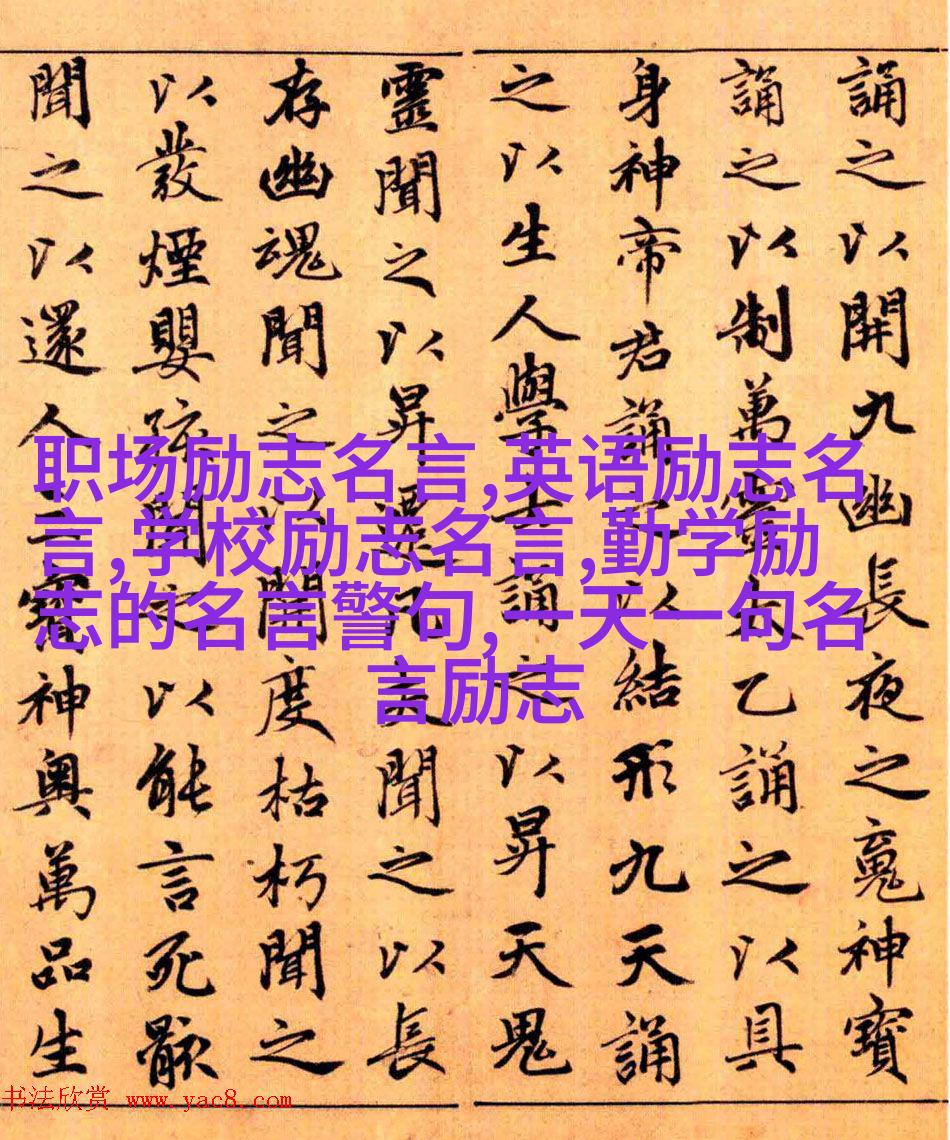 誦之以開九幽長夜之魂神寶
誦之以制萬靈太乙誦之以具
身神帝君誦之以結形九天誦
之以生人學士誦之以昇天鬼
靈聞之以昇遷凡夫聞之以長
存幽魂聞之以開度枯朽聞之
以發煙嬰孩聞之以能言死骸
聞之以還人三寶神奧萬品生
职场励志名言,英语励志名
言,学校励志名言,勤学励
志的名言警句,一天一句名
言励志
书法欣赏 www.yac8.com